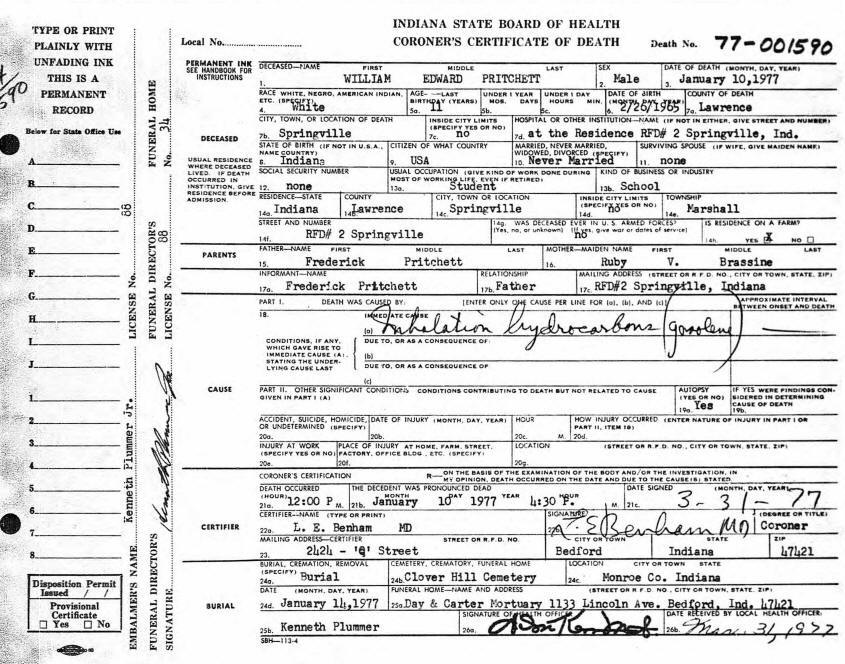 INDIANA STATE BOARD OF HEALTH
CORONER'S CERTIFICATE OF DEATH
Local No.
Death No. 77-001590
TYPE OR PRINT
PLAINLY WITH
UNFADING INK
THIS IS A
PERMANENT
RECORD
Below for State Office Use
A
B
C
D
E
F
G
H
I
J
1
2
3
4
5
6
7
8
Disposition Permit
Issued / /
Provisional
Certificate
Yes No
EMBALMER'S NAME Kenneth Plummer Jr. LICENSE No. 88
FUNERAL DIRECTOR'S SIGNATURE
FUNERAL DIRECTOR'S LICENSE No. 88
FUNERAL HOME No. 34
PERMANENT INK
SEE HANDBOOK FOR
INSTRUCTIONS
DECEASED—NAME FIRST MIDDLE LAST
1. WILLIAM EDWARD PRITCHETT
SEX
2. Male
DATE OF DEATH (MONTH, DAY, YEAR)
3. January 10,1977
RACE WHITE, NEGRO, AMERICAN INDIAN,
ETC. (SPECIFY)
4. White
AGE—LAST
BIRTHDAY (YEARS)
5a. 11
UNDER 1 YEAR
MOS. DAYS
5b.
UNDER 1 DAY
HOURS MIN.
5c.
DATE OF BIRTH
(MONTH, DAY, YEAR)
6. 2/26/1965
COUNTY OF DEATH
7a. Lawrence
DECEASED
CITY, TOWN, OR LOCATION OF DEATH
7b. Springville
INSIDE CITY LIMITS
(SPECIFY YES OR NO)
7c. no
HOSPITAL OR OTHER INSTITUTION—NAME (IF NOT IN EITHER, GIVE STREET AND NUMBER)
7d. at the Residence RFD# 2 Springville, Ind.
USUAL RESIDENCE
WHERE DECEASED
LIVED. IF DEATH
OCCURRED IN
INSTITUTION, GIVE
RESIDENCE BEFORE
ADMISSION.
STATE OF BIRTH (IF NOT IN U.S.A.,
NAME COUNTRY)
8. Indiana
CITIZEN OF WHAT COUNTRY
9. USA
MARRIED, NEVER MARRIED,
WIDOWED, DIVORCED (SPECIFY)
10. Never Married
SURVIVING SPOUSE (IF WIFE, GIVE MAIDEN NAME)
11. none
SOCIAL SECURITY NUMBER
12. none
USUAL OCCUPATION (GIVE KIND OF WORK DONE DURING
MOST OF WORKING LIFE, EVEN IF RETIRED)
13a. Student
KIND OF BUSINESS OR INDUSTRY
13b. School
RESIDENCE—STATE
14a. Indiana
COUNTY
14b. Lawrence
CITY, TOWN OR LOCATION
14c. Springville
INSIDE CITY LIMITS
(SPECIFY YES OR NO)
14d. no
TOWNSHIP
14e. Marshall
STREET AND NUMBER
14f. RFD# 2 Springville
14g. WAS DECEASED EVER IN U.S. ARMED FORCES?
(Yes, no, or unknown) (If yes, give war or dates of service)
no
IS RESIDENCE ON A FARM?
14h. YES X NO
PARENTS
FATHER—NAME FIRST MIDDLE LAST
15. Frederick Pritchett
MOTHER—MAIDEN NAME FIRST MIDDLE LAST
16. Ruby V. Brassine
INFORMANT—NAME
17a. Frederick Pritchett
RELATIONSHIP
17b. Father
MAILING ADDRESS (STREET OR R.F.D. NO., CITY OR TOWN, STATE, ZIP)
17c. RFD#2 Springville, Indiana
PART I. DEATH WAS CAUSED BY: [ENTER ONLY ONE CAUSE PER LINE FOR (a), (b), AND (c)]
APPROXIMATE INTERVAL
BETWEEN ONSET AND DEATH
18.
IMMEDIATE CAUSE
(a) Inhalation hydrocarbons (gasolene)
CONDITIONS, IF ANY,
WHICH GAVE RISE TO
IMMEDIATE CAUSE (A).
STATING THE UNDER-
LYING CAUSE LAST
DUE TO, OR AS A CONSEQUENCE OF:
(b)
DUE TO, OR AS A CONSEQUENCE OF
(c)
CAUSE
PART II. OTHER SIGNIFICANT CONDITIONS CONDITIONS CONTRIBUTING TO DEATH BUT NOT RELATED TO CAUSE
GIVEN IN PART I (A)
AUTOPSY
(YES OR NO)
19a. Yes
IF YES WERE FINDINGS CON-
SIDERED IN DETERMINING
CAUSE OF DEATH
19b.
ACCIDENT, SUICIDE, HOMICIDE,
OR UNDETERMINED (SPECIFY)
20a.
DATE OF INJURY (MONTH, DAY, YEAR)
20b.
HOUR
20c. M.
HOW INJURY OCCURRED (ENTER NATURE OF INJURY IN PART I OR
PART II, ITEM 18)
20d.
INJURY AT WORK
(SPECIFY YES OR NO)
20e.
PLACE OF INJURY AT HOME, FARM, STREET,
FACTORY, OFFICE BLDG., ETC. (SPECIFY)
20f.
LOCATION (STREET OR R.F.D. NO., CITY OR TOWN, STATE, ZIP)
20g.
CORONER'S CERTIFICATION
ON THE BASIS OF THE EXAMINATION OF THE BODY AND/OR THE INVESTIGATION, IN
MY OPINION, DEATH OCCURRED ON THE DATE AND DUE TO THE CAUSE(S) STATED.
DEATH OCCURRED
(HOUR)
21a. 12:00 P M.
THE DECEDENT WAS PRONOUNCED DEAD
MONTH DAY YEAR HOUR
21b. January 10 1977 4:30 P. M.
DATE SIGNED (MONTH, DAY, YEAR)
21c. 3-31-77
CERTIFIER
CERTIFIER—NAME (TYPE OR PRINT)
22a. L. E. Benham MD
SIGNATURE
L. E Benham MD
(DEGREE OR TITLE)
Coroner
MAILING ADDRESS—CERTIFIER STREET OR R.F.D. NO. CITY OR TOWN STATE ZIP
23. 2424 - 'Q' Street Bedford Indiana 47421
BURIAL
BURIAL, CREMATION, REMOVAL
(SPECIFY)
24a. Burial
CEMETERY, CREMATORY, FUNERAL HOME
24b. Clover Hill Cemetery
LOCATION CITY OR TOWN STATE
24c. Monroe Co. Indiana
DATE (MONTH, DAY, YEAR)
24d. January 14,1977
FUNERAL HOME—NAME AND ADDRESS (STREET OR R.F.D. NO., CITY OR TOWN, STATE, ZIP)
25a. Day & Carter Mortuary 1133 Lincoln Ave. Bedford, Ind. 47421
25b. Kenneth Plummer
SIGNATURE OF HEALTH OFFICER
26a.
DATE RECEIVED BY LOCAL HEALTH OFFICER
26b. Mar. 31, 1977
SBH—113-4